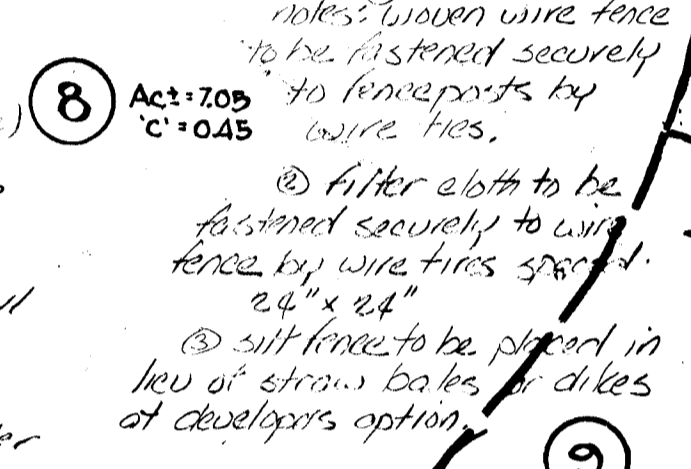 notes: Woven wire fence
to be fastened securely
8 Ac±=7.05 to fenceposts by
'C'=0.45 wire ties.
② filter cloth to be
fastened securely to wire
fence by wire tires spaced.
24" x 24"
③ silt fence to be placed in
lieu of straw bales or dikes
at developers option.
9